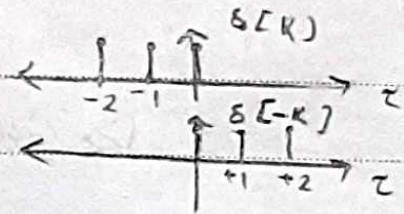 δ[K)
-2 -1 τ
δ[-K]
+1 +2 τ